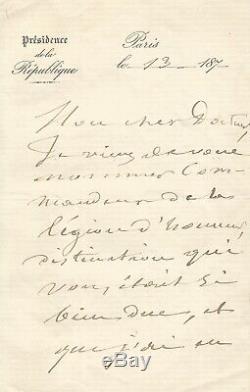 Présidence
de la
République
Paris
le 13 187
Mon cher Docteur
Je viens de vous
nommer Com-
mandeur de la
légion d'honneur,
distinction qui
vous était si
bien due, et
que j'ai eu